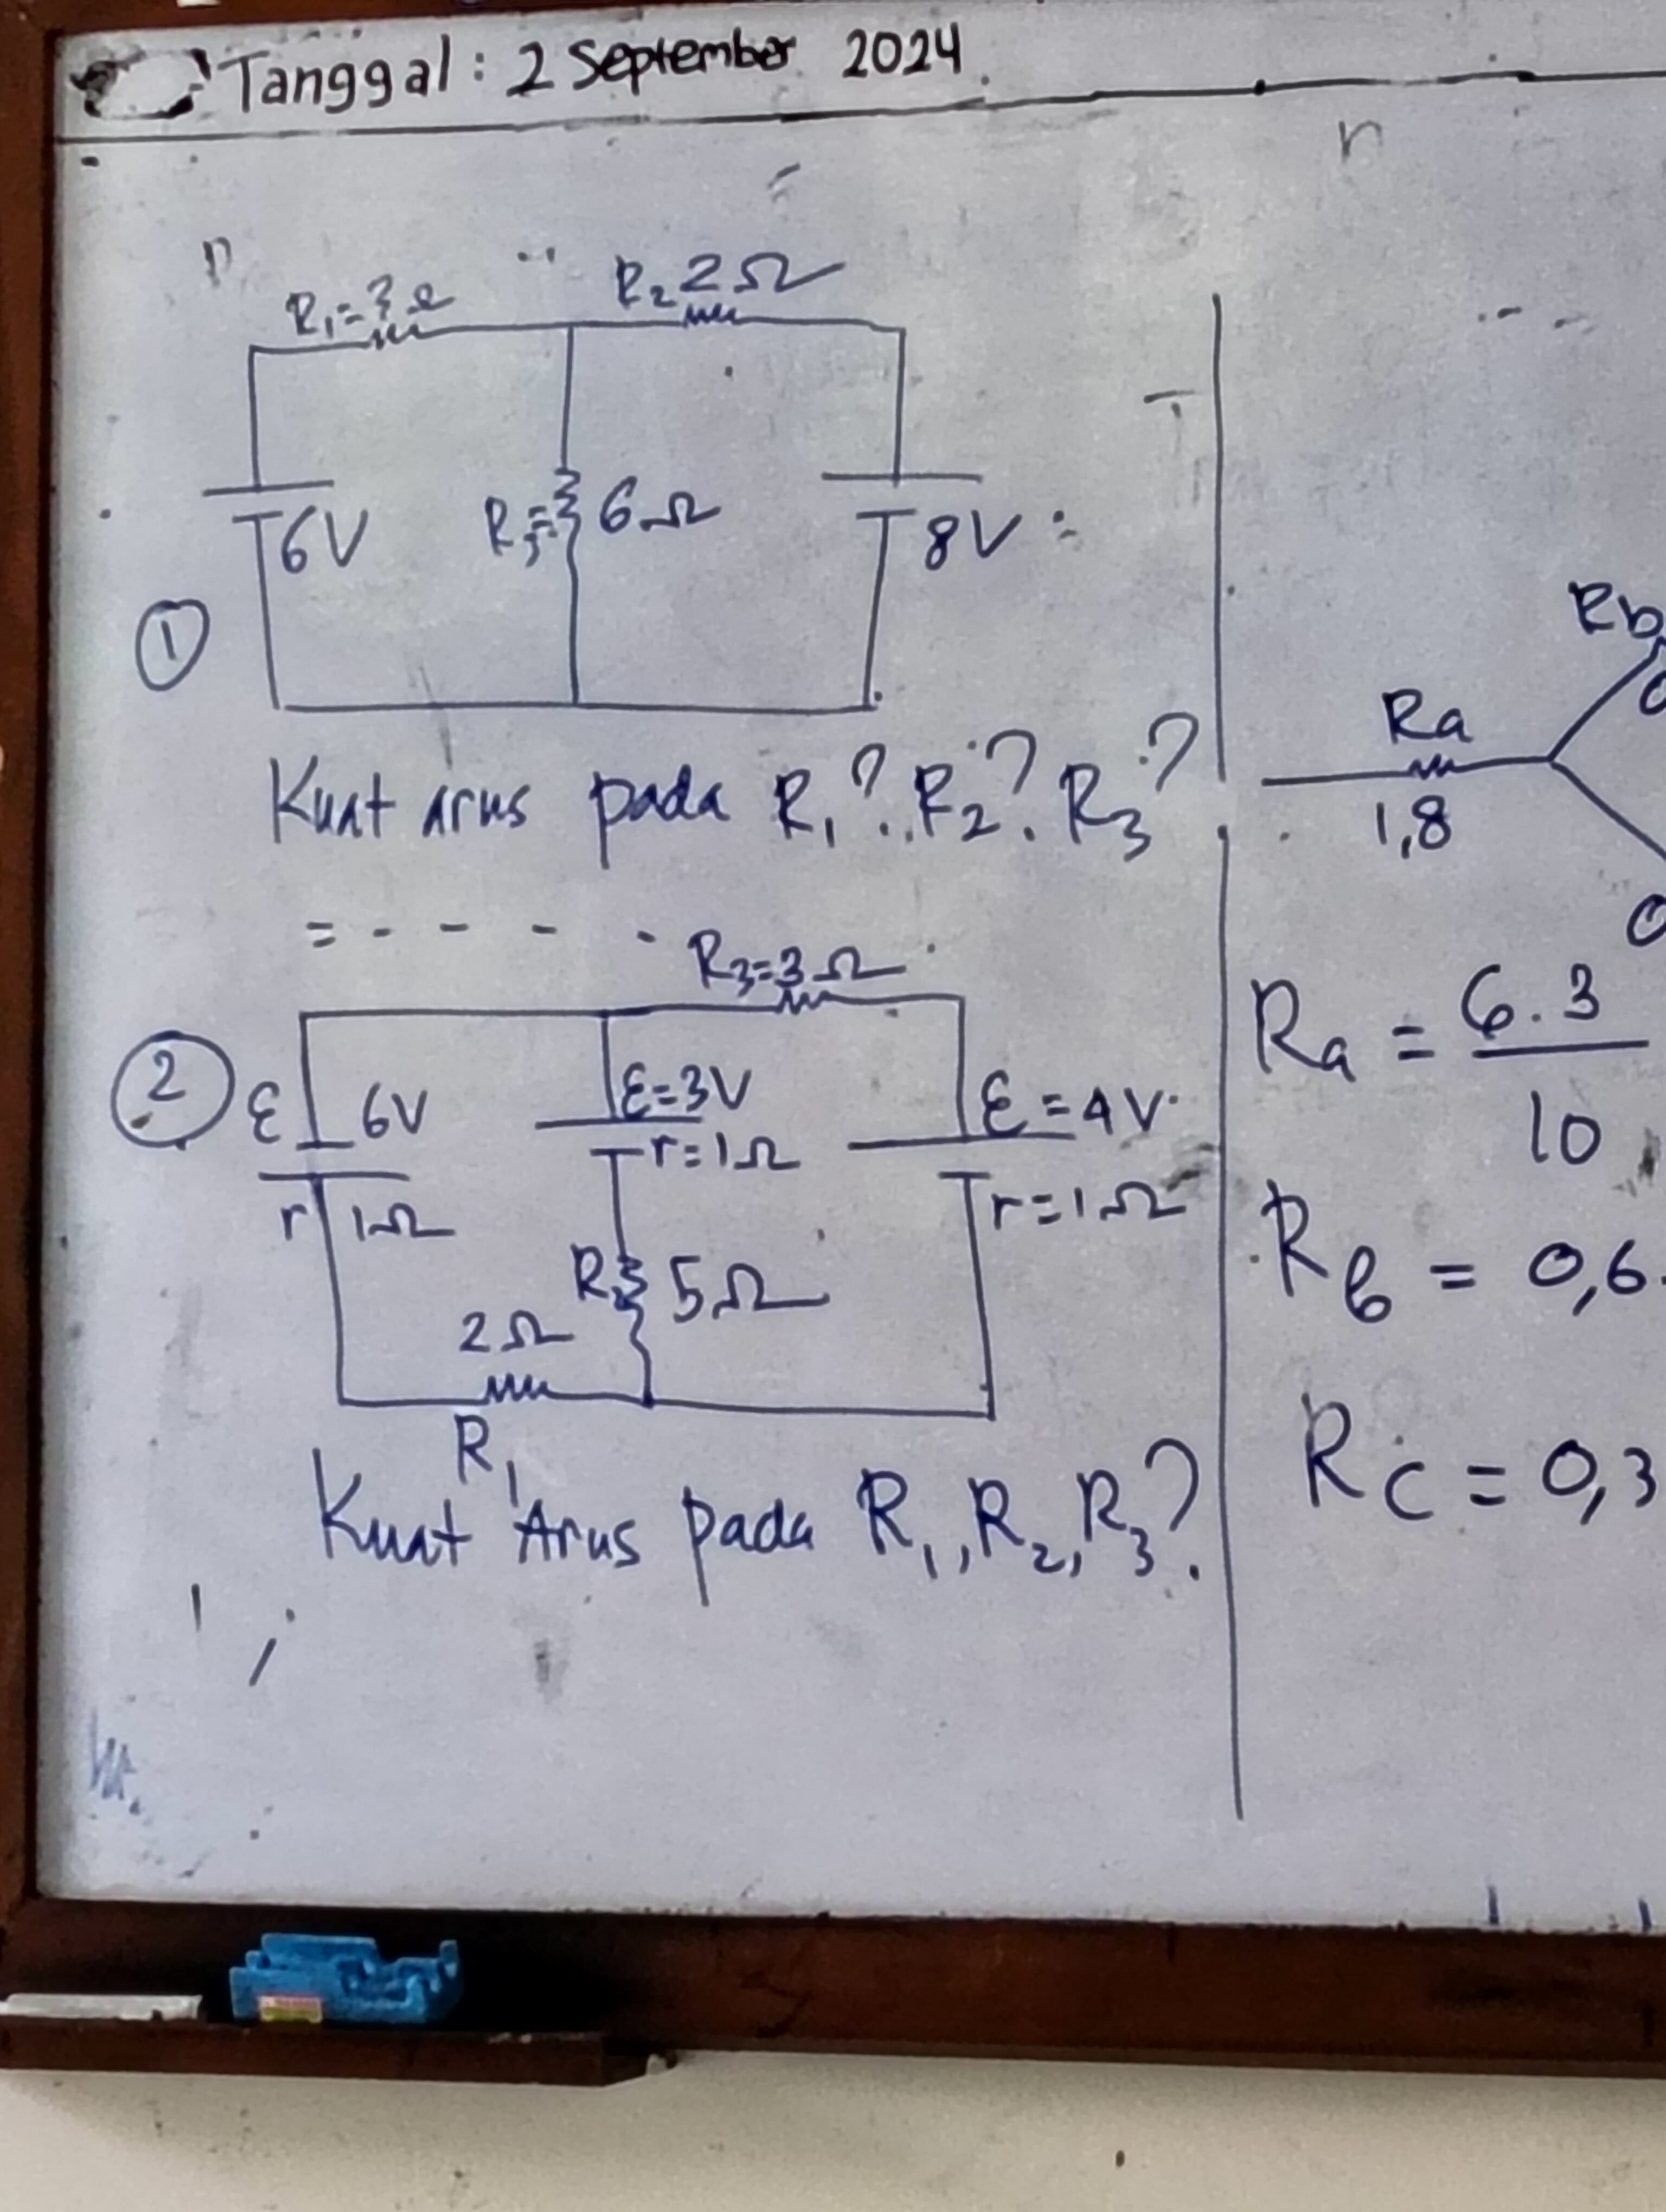 Tanggal : 2 September 2024
R₁=3Ω
R₂ 2Ω
6V
R₃= 6Ω
8V
①
Kuat arus pada R₁? R₂? R₃?
R₃=3Ω
②
ε 6V
r 1Ω
ε=3V
r=1Ω
ε=4V
r=1Ω
R₂ 5Ω
2Ω
R₁
Kuat Arus pada R₁, R₂, R₃?
Rb
Ra
1,8
Ra = 6.3
10
Rb = 0,6
Rc = 0,3